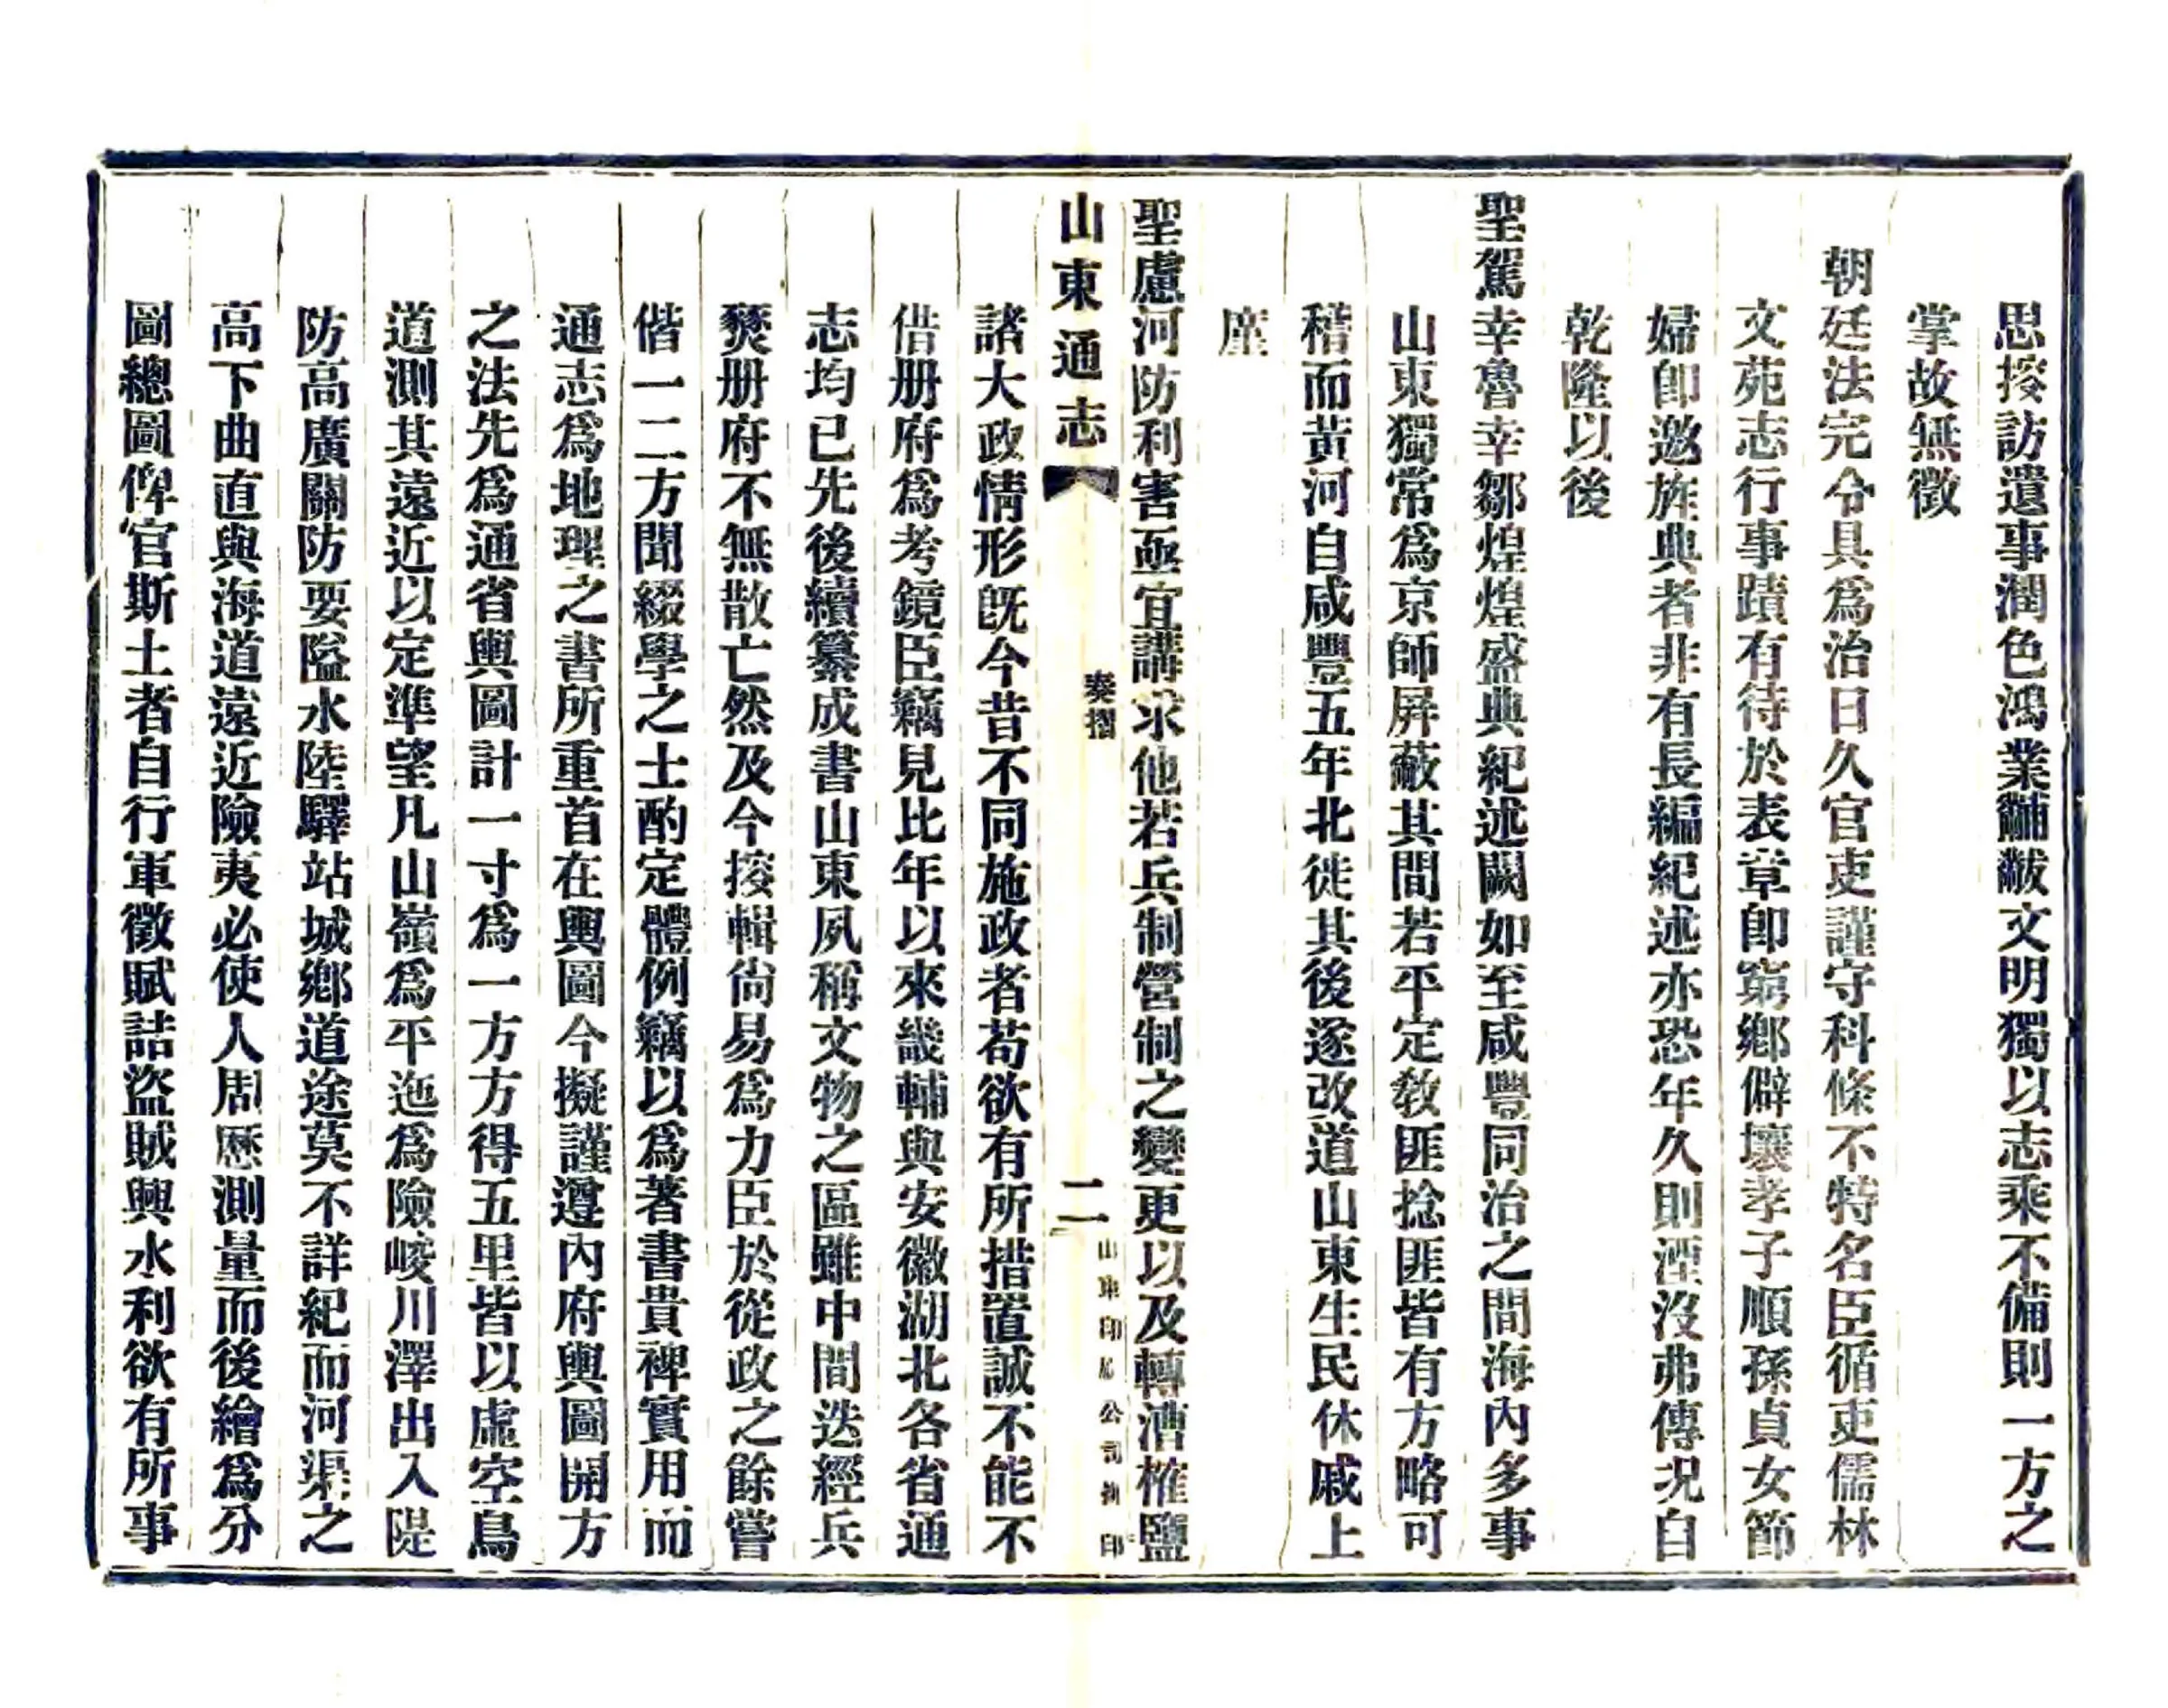 思按訪遺事潤色鴻業黼黻文明獨以志乘不備則一方之
掌故無徵
朝廷法完令具爲治日久官吏謹守科條不特名臣循吏儒林
文苑志行事蹟有待於表章卽窮鄉僻壤孝子順孫貞女節
婦卽邀旌典者非有長編紀述亦恐年久則湮沒弗傳況自
乾隆以後
聖駕幸魯幸鄒煌煌盛典紀述闕如至咸豐同治之間海內多事
山東獨常爲京師屏蔽其間若平定敎匪捻匪皆有方略可
稽而黃河自咸豐五年北徙其後遂改道山東生民休戚上
廑
聖慮河防利害亟宜講求他若兵制營制之變更以及轉漕榷鹽
山東通志 奏摺 二 山東印刷公司排印
諸大政情形旣今昔不同施政者苟欲有所措置誠不能不
借册府爲考鏡臣竊見比年以來畿輔與安徽湖北各省通
志均已先後續纂成書山東夙稱文物之區雖中間迭經兵
燹册府不無散亡然及今按輯尙易爲力臣於從政之餘嘗
偕一二方聞綴學之士酌定體例竊以爲著書貴裨實用而
通志爲地理之書所重首在輿圖今擬謹遵內府輿圖開方
之法先爲通省輿圖計一寸爲一方方得五里皆以虛空鳥
道測其遠近以定準望凡山嶺爲平迤爲險峻川澤出入隄
防高廣關防要隘水陸驛站城鄉道途莫不詳紀而河渠之
高下曲直與海道遠近險夷必使人周歷測量而後繪爲分
圖總圖俾官斯土者自行軍徵賦詰盜賊興水利欲有所事